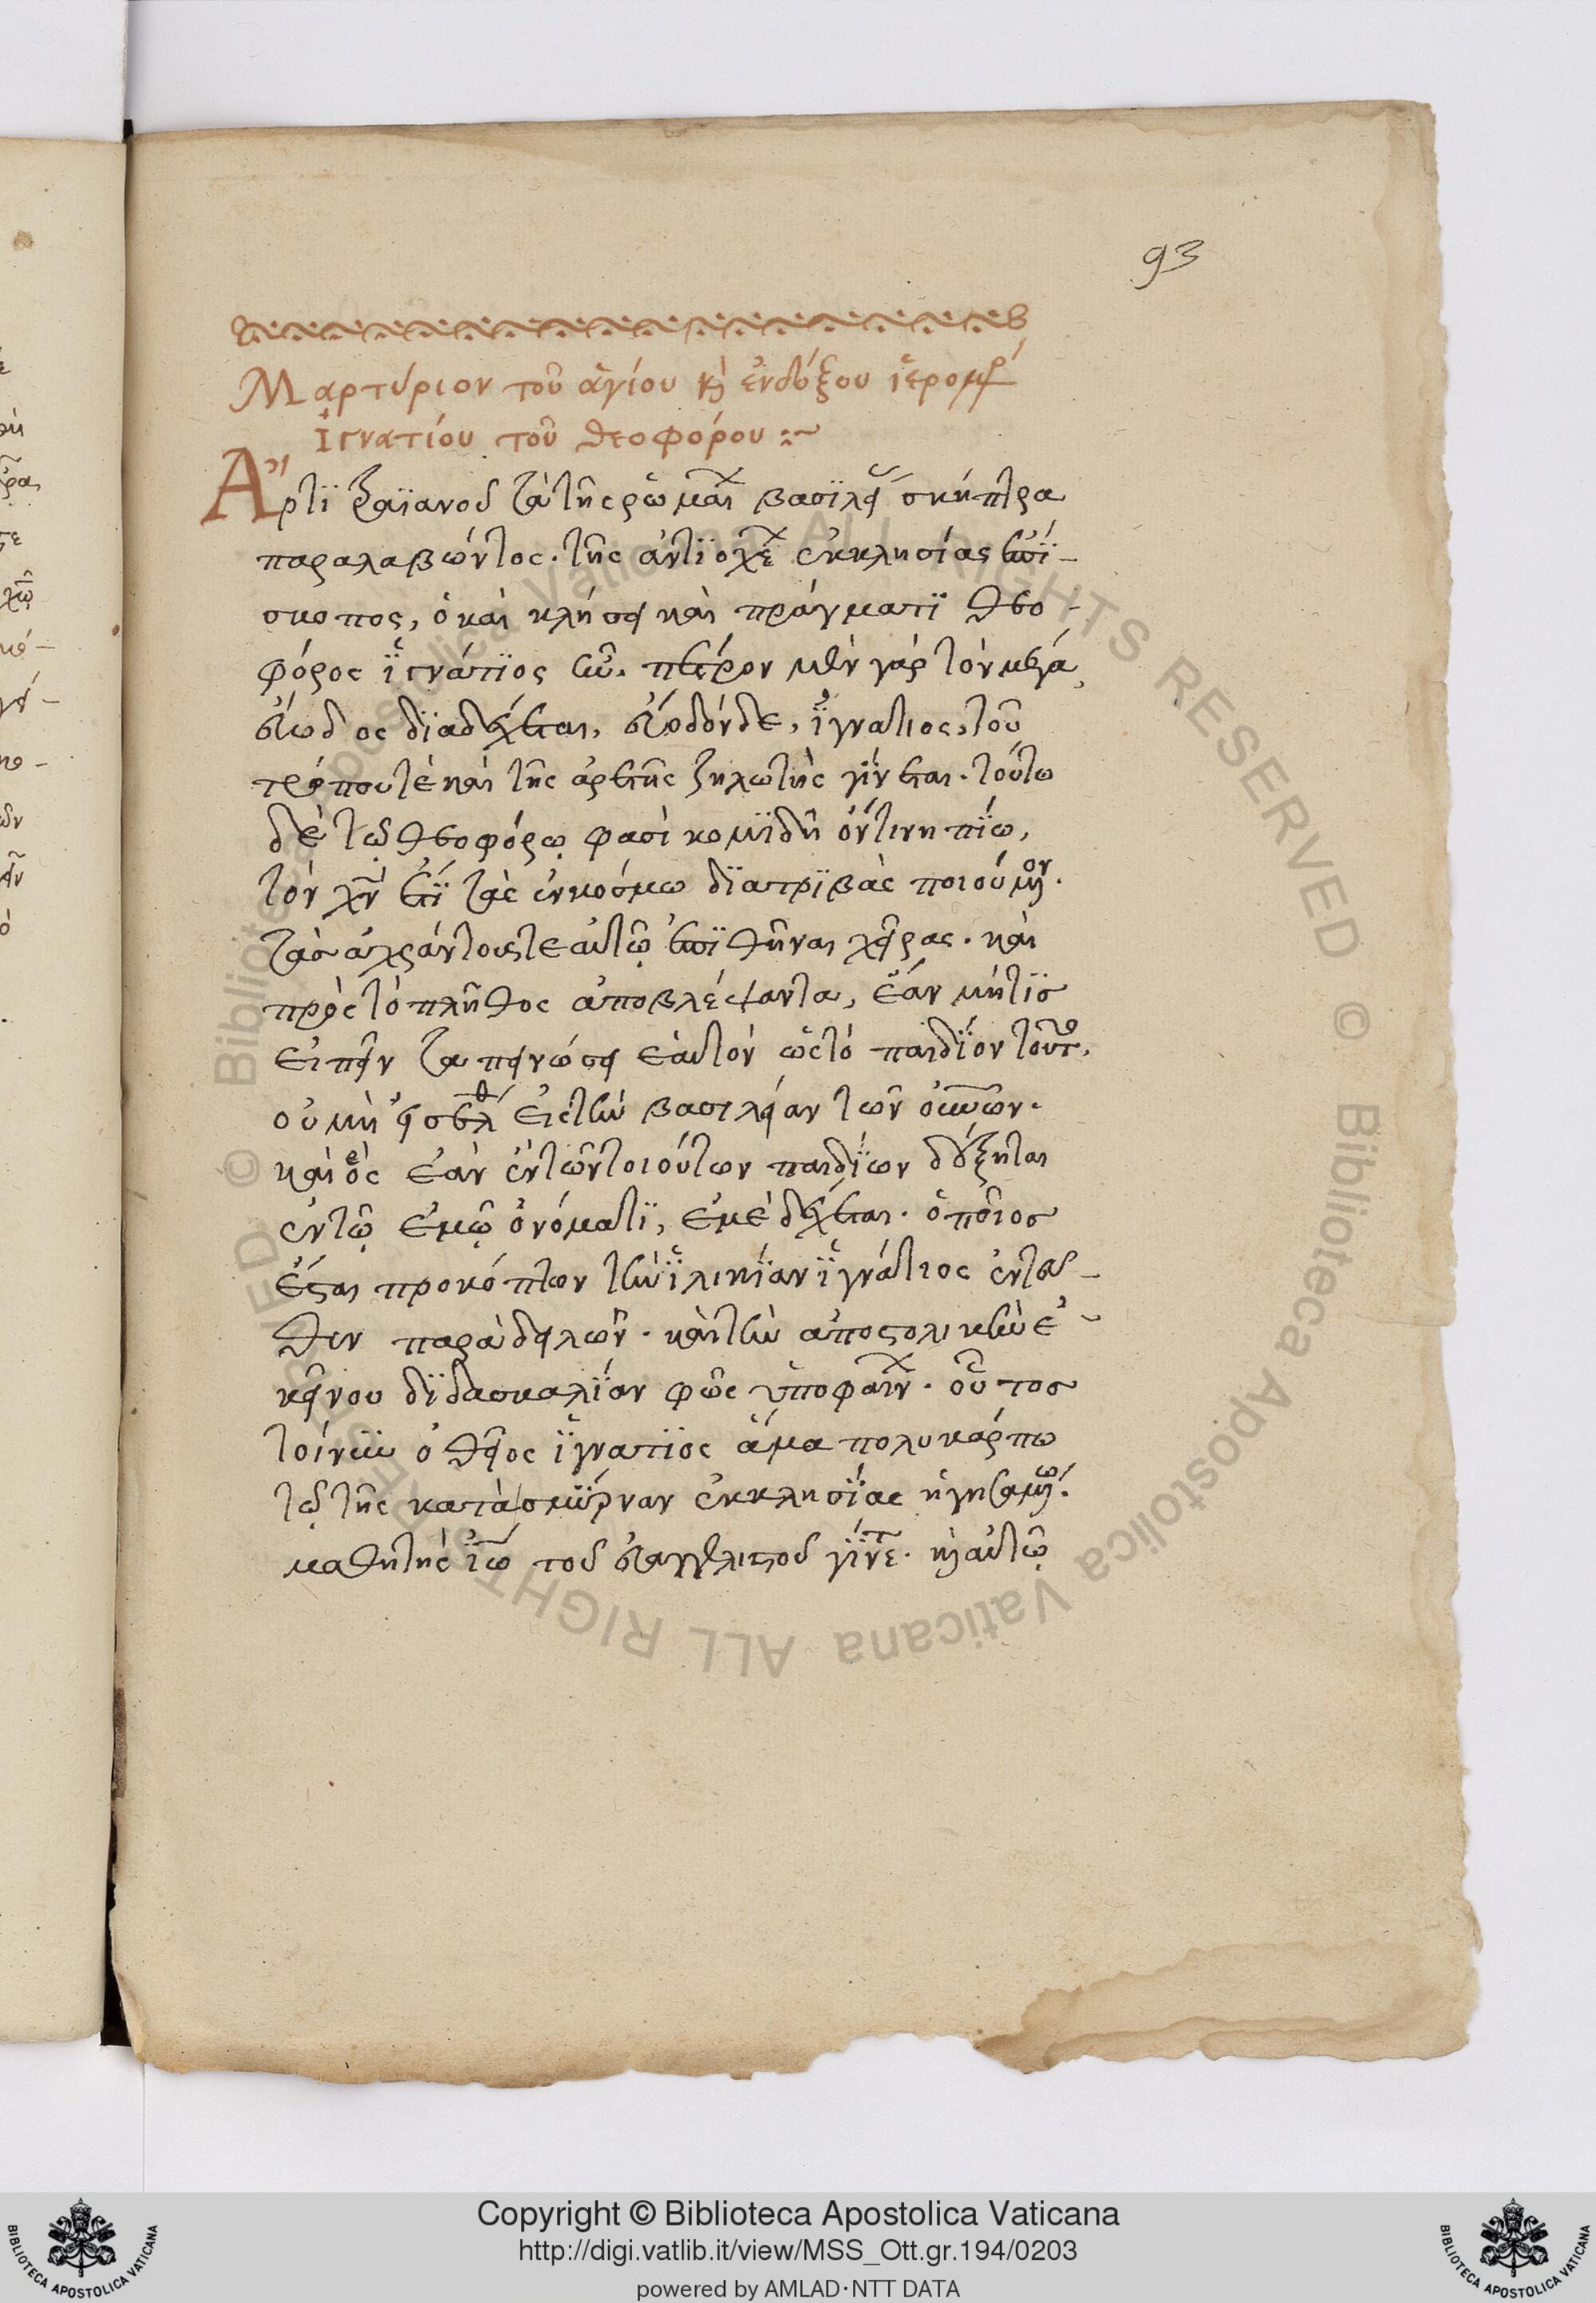 93
Μαρτύριον τοῦ ἁγίου κ̀ ἐνδόξου ἱερομρ́
Ἰγνατίου τοῦ θεοφόρου :~
Ἄρτϊ τραϊανοῦ τὰ τῆς ῥωμαι βασϊλει σκήπτρα
παραλαβώντος. τῆς ἀντϊοχε ἐκκλησίας ἐπΐ-
σκοπος, ὁ καὶ κλήσει καὶ πράγματϊ θεο-
φόρος ἰγνάτϊος ἦν. πέτρον μὲν γὰρ τὸν μέγα,
εὔωδος δϊαδέχεται, εὔοδον δε, ἰγνατιος, τοῦ
τρόπου τὲ καὶ τῆς ἀρετῆς ζηλωτὴς γΐνεται. τούτω
δὲ τῷ θεοφόρῳ φασὶ κομϊδῆ ὄντι νηπΐω,
τὸν χν ἐπΐ τὰς ἐν κοσμω δϊατρϊβὰς ποιούμενον.
τὰσ ἀχράντους τε αὐτῷ ἐπϊθῆναι χεῖρας. καὶ
πρὸς τὸ πλῆθος ἀποβλέψαντα, ἐάν μήτϊσ
εἰπεῖν ταπεινώσει ἑαυτὸν ὡς τὸ παιδΐον τοῦτο,
οὐ μὴ εἰσέλθ εἰς τὴν βασιλείαν τῶν οὐνῶν.
καὶ ὃς ἐὰν ἐν τῶν τοιούτων παιδΐων δέξηται
ἐν τῷ ἐμῷ ὀνόματϊ, ἐμὲ δέχεται. ὁποῖοσ
ἔσται προκόπτων τὴν ἰλικΐαν ἰγνάτιος ἐντεῦ-
θεν παραδηλῶν. καὶ τὴν ἀποστολικὴν ἐ-
κείνου δϊδασκαλΐαν φῶς ὑποφαίν. οὗτοσ
τοίνυν ὁ θεῖος ἰγνατϊος ἅμα πολυκάρπω
τῷ τῆς κατὰ σμΰρναν ἐκκλησΐας ἡγησαμένω.
μαθητὴς ἰω τοῦ εὐαγγελιστοῦ γΐνετ. κ̀ αὐτῷ
Copyright © Biblioteca Apostolica Vaticana
http://digi.vatlib.it/view/MSS_Ott.gr.194/0203
powered by AMLAD·NTT DATA
BIBLIOTECA APOSTOLICA VATICANA
BIBLIOTECA APOSTOLICA VATICANA
© Biblioteca Apostolica Vaticana ALL RIGHTS RESERVED
© Biblioteca Apostolica Vaticana ALL RIGHTS RESERVED